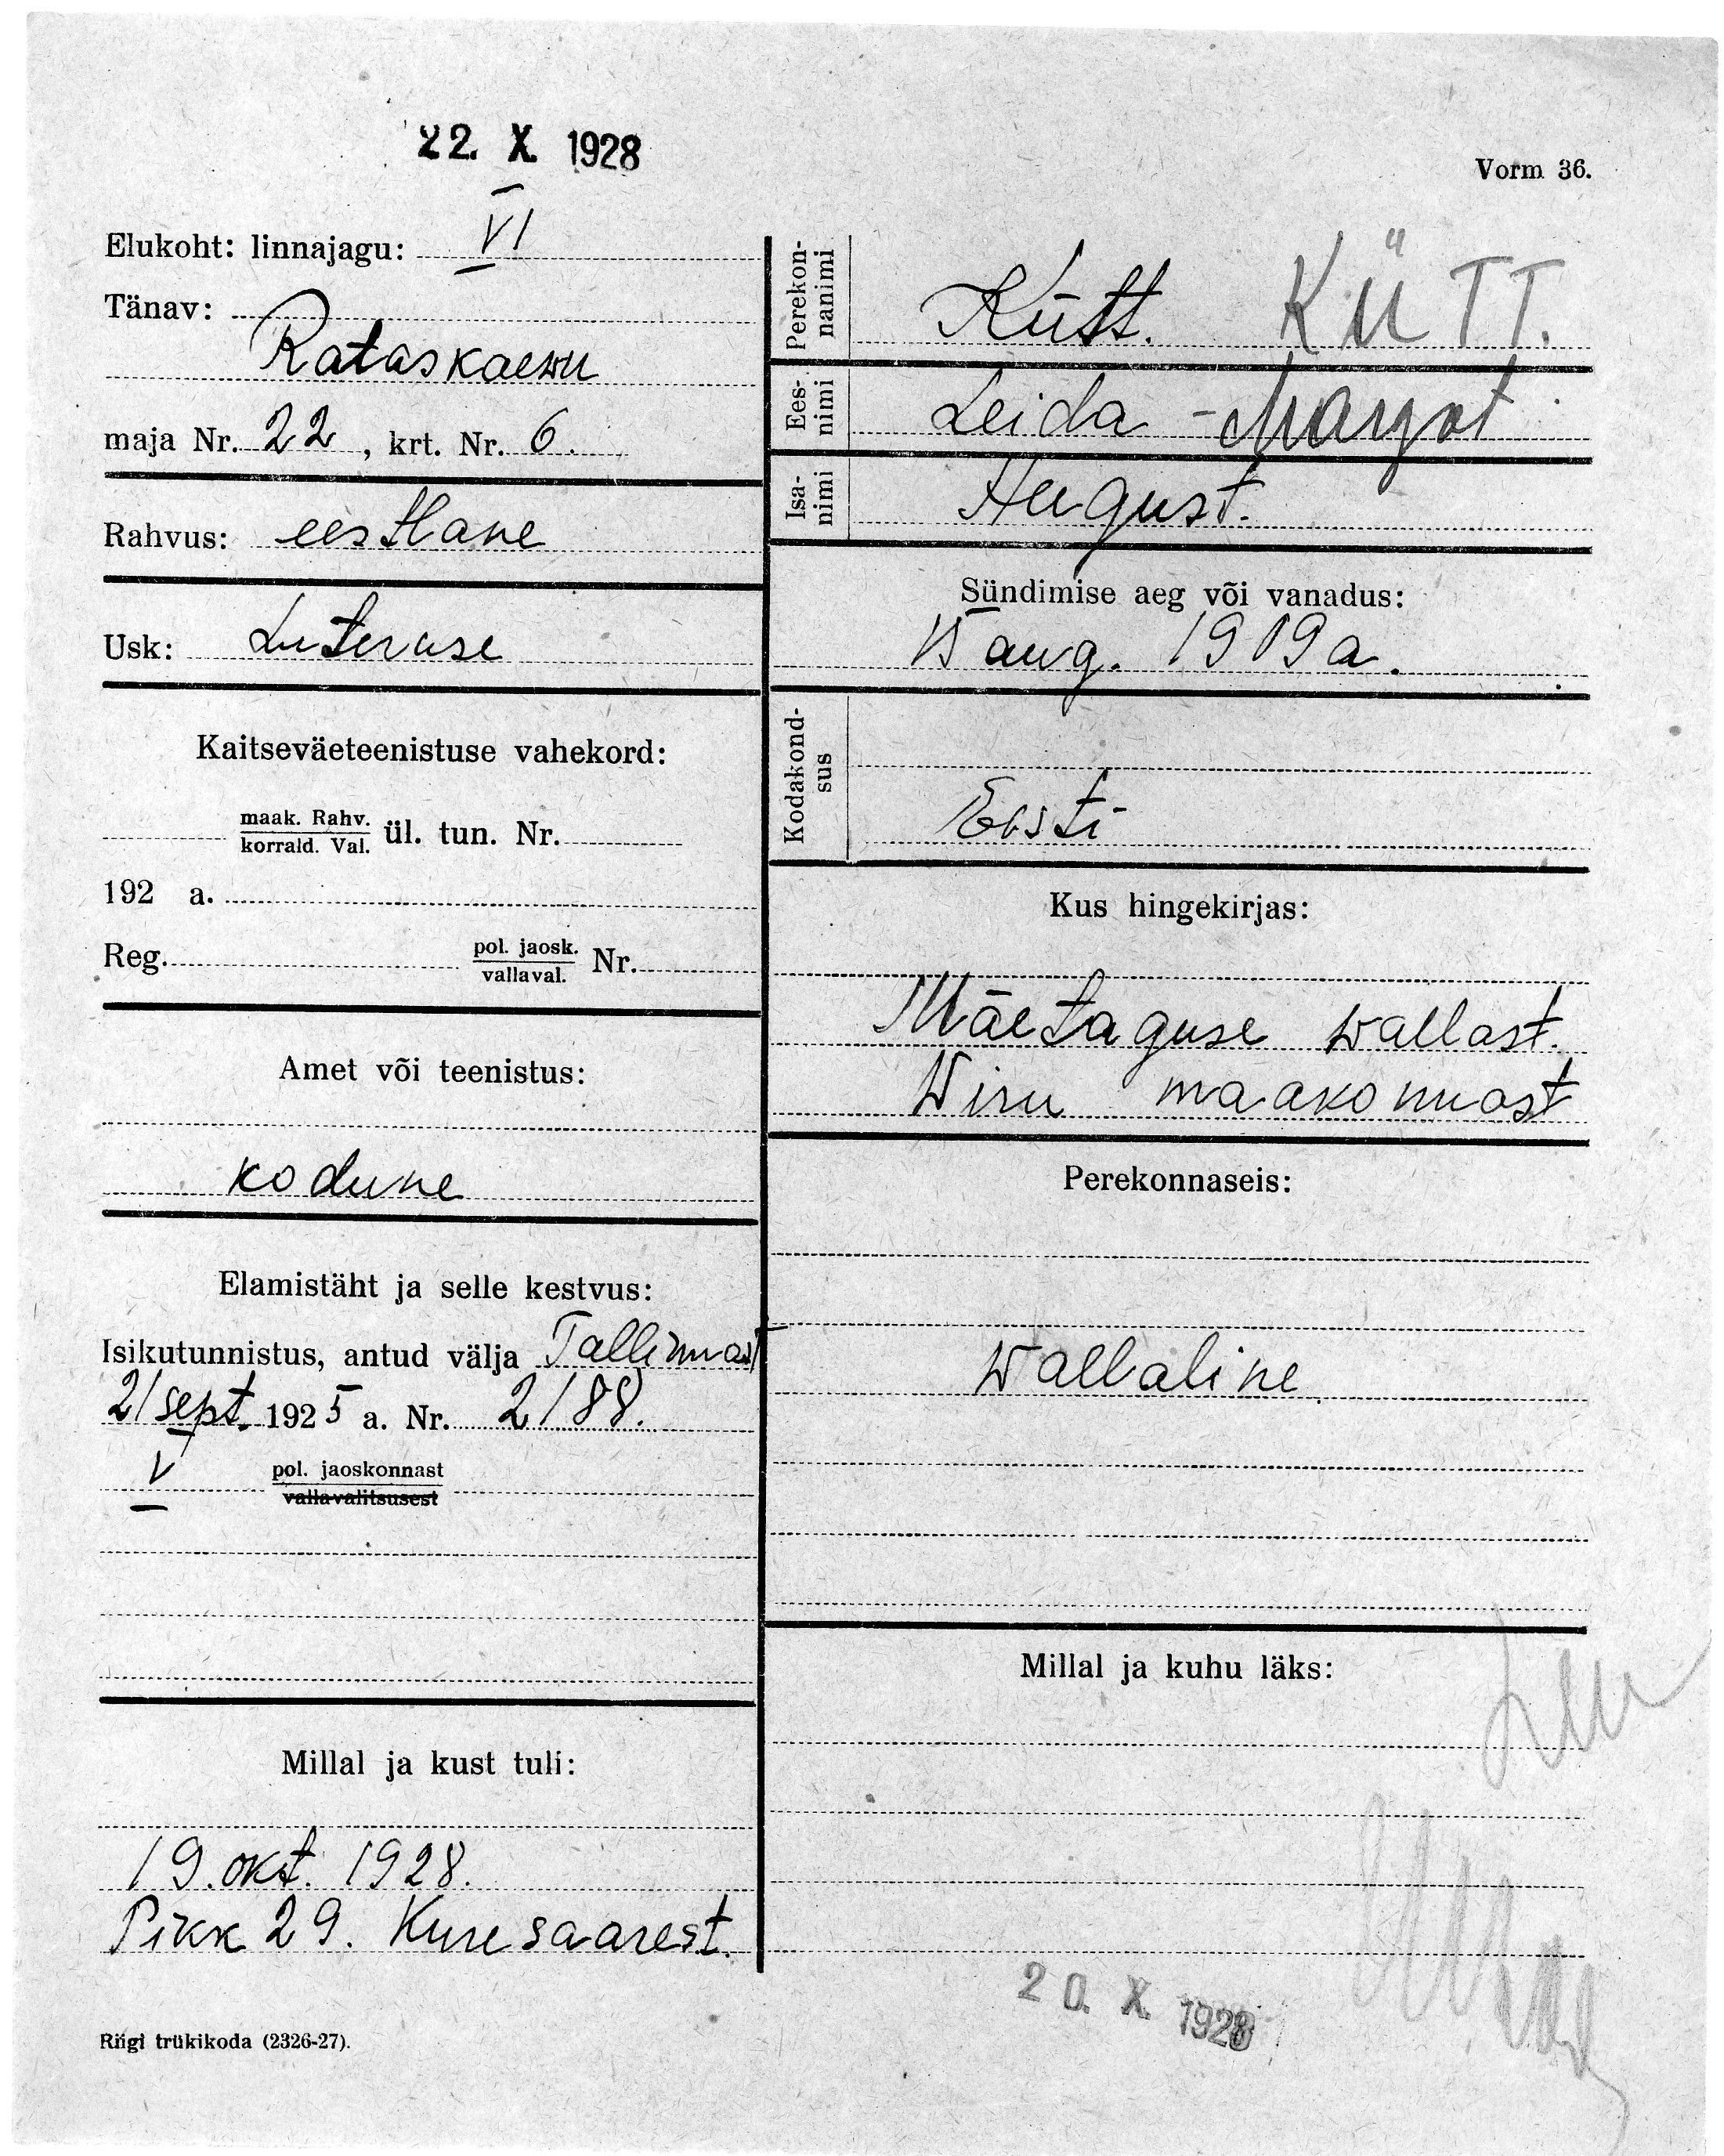 22. X. 1928
Vorm 36.
Elukoht: linnajagu: VI
Tänav:
Rataskaewu
maja Nr. 22, krt. Nr. 6.
Rahvus: eestlane
Usk: Luteruse
Kaitseväeteenistuse vahekord:
maak. Rahv.
korrald. Val. ül. tun. Nr.
192 a.
Reg. pol. jaosk.
vallaval. Nr.
Amet või teenistus:
kodune
Elamistäht ja selle kestvus:
Isikutunnistus, antud välja Tallinnast
21 sept. 1925 a. Nr. 2188.
V pol. jaoskonnast
vallavalitsusest
Millal ja kust tuli:
19. okt. 1928.
Pikk 29. Kuresaarest.
Riigi trükikoda (2326-27).
Perekon-
nanimi
Kütt. KÜTT.
Ees-
nimi
Leida - Margot
Isa-
nimi
August.
Sündimise aeg või vanadus:
15 aug. 1909 a.
Kodakond-
sus
Eesti
Kus hingekirjas:
Mäetaguse wallast.
Wiru maakonnast
Perekonnaseis:
wallaline
Millal ja kuhu läks:
20. X. 1928